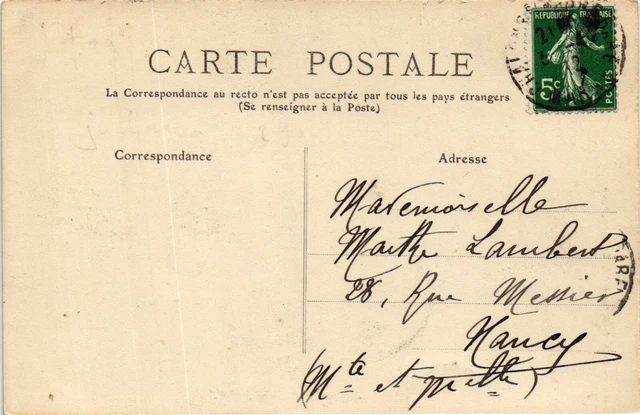 REPUBLIQUE FRANÇAISE
5c
POSTES
CARTE POSTALE
La Correspondance au recto n'est pas acceptée par tous les pays étrangers
(Se renseigner à la Poste)
Correspondance
Adresse
Mademoiselle
Marthe Lambert
28, Rue Messier
Nancy
(Mthe et Mlle)